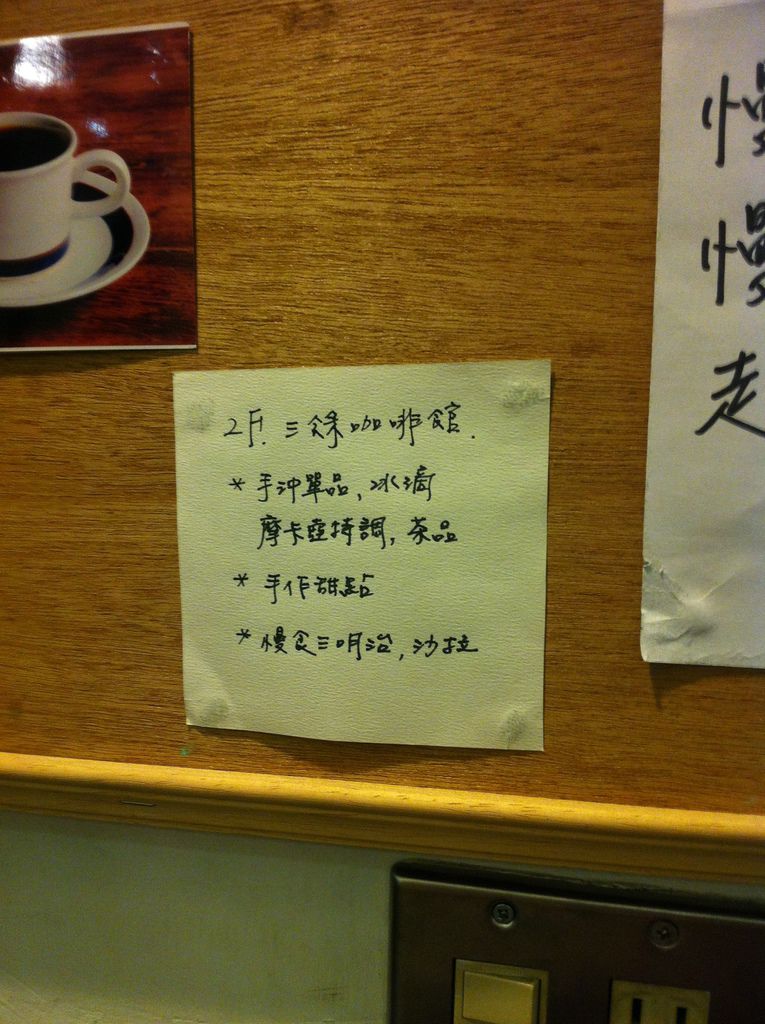 2F. 三余咖啡館.
* 手沖單品, 冰滴
摩卡壺特調, 茶品
* 手作甜點
* 慢食三明治, 沙拉
慢
慢
走